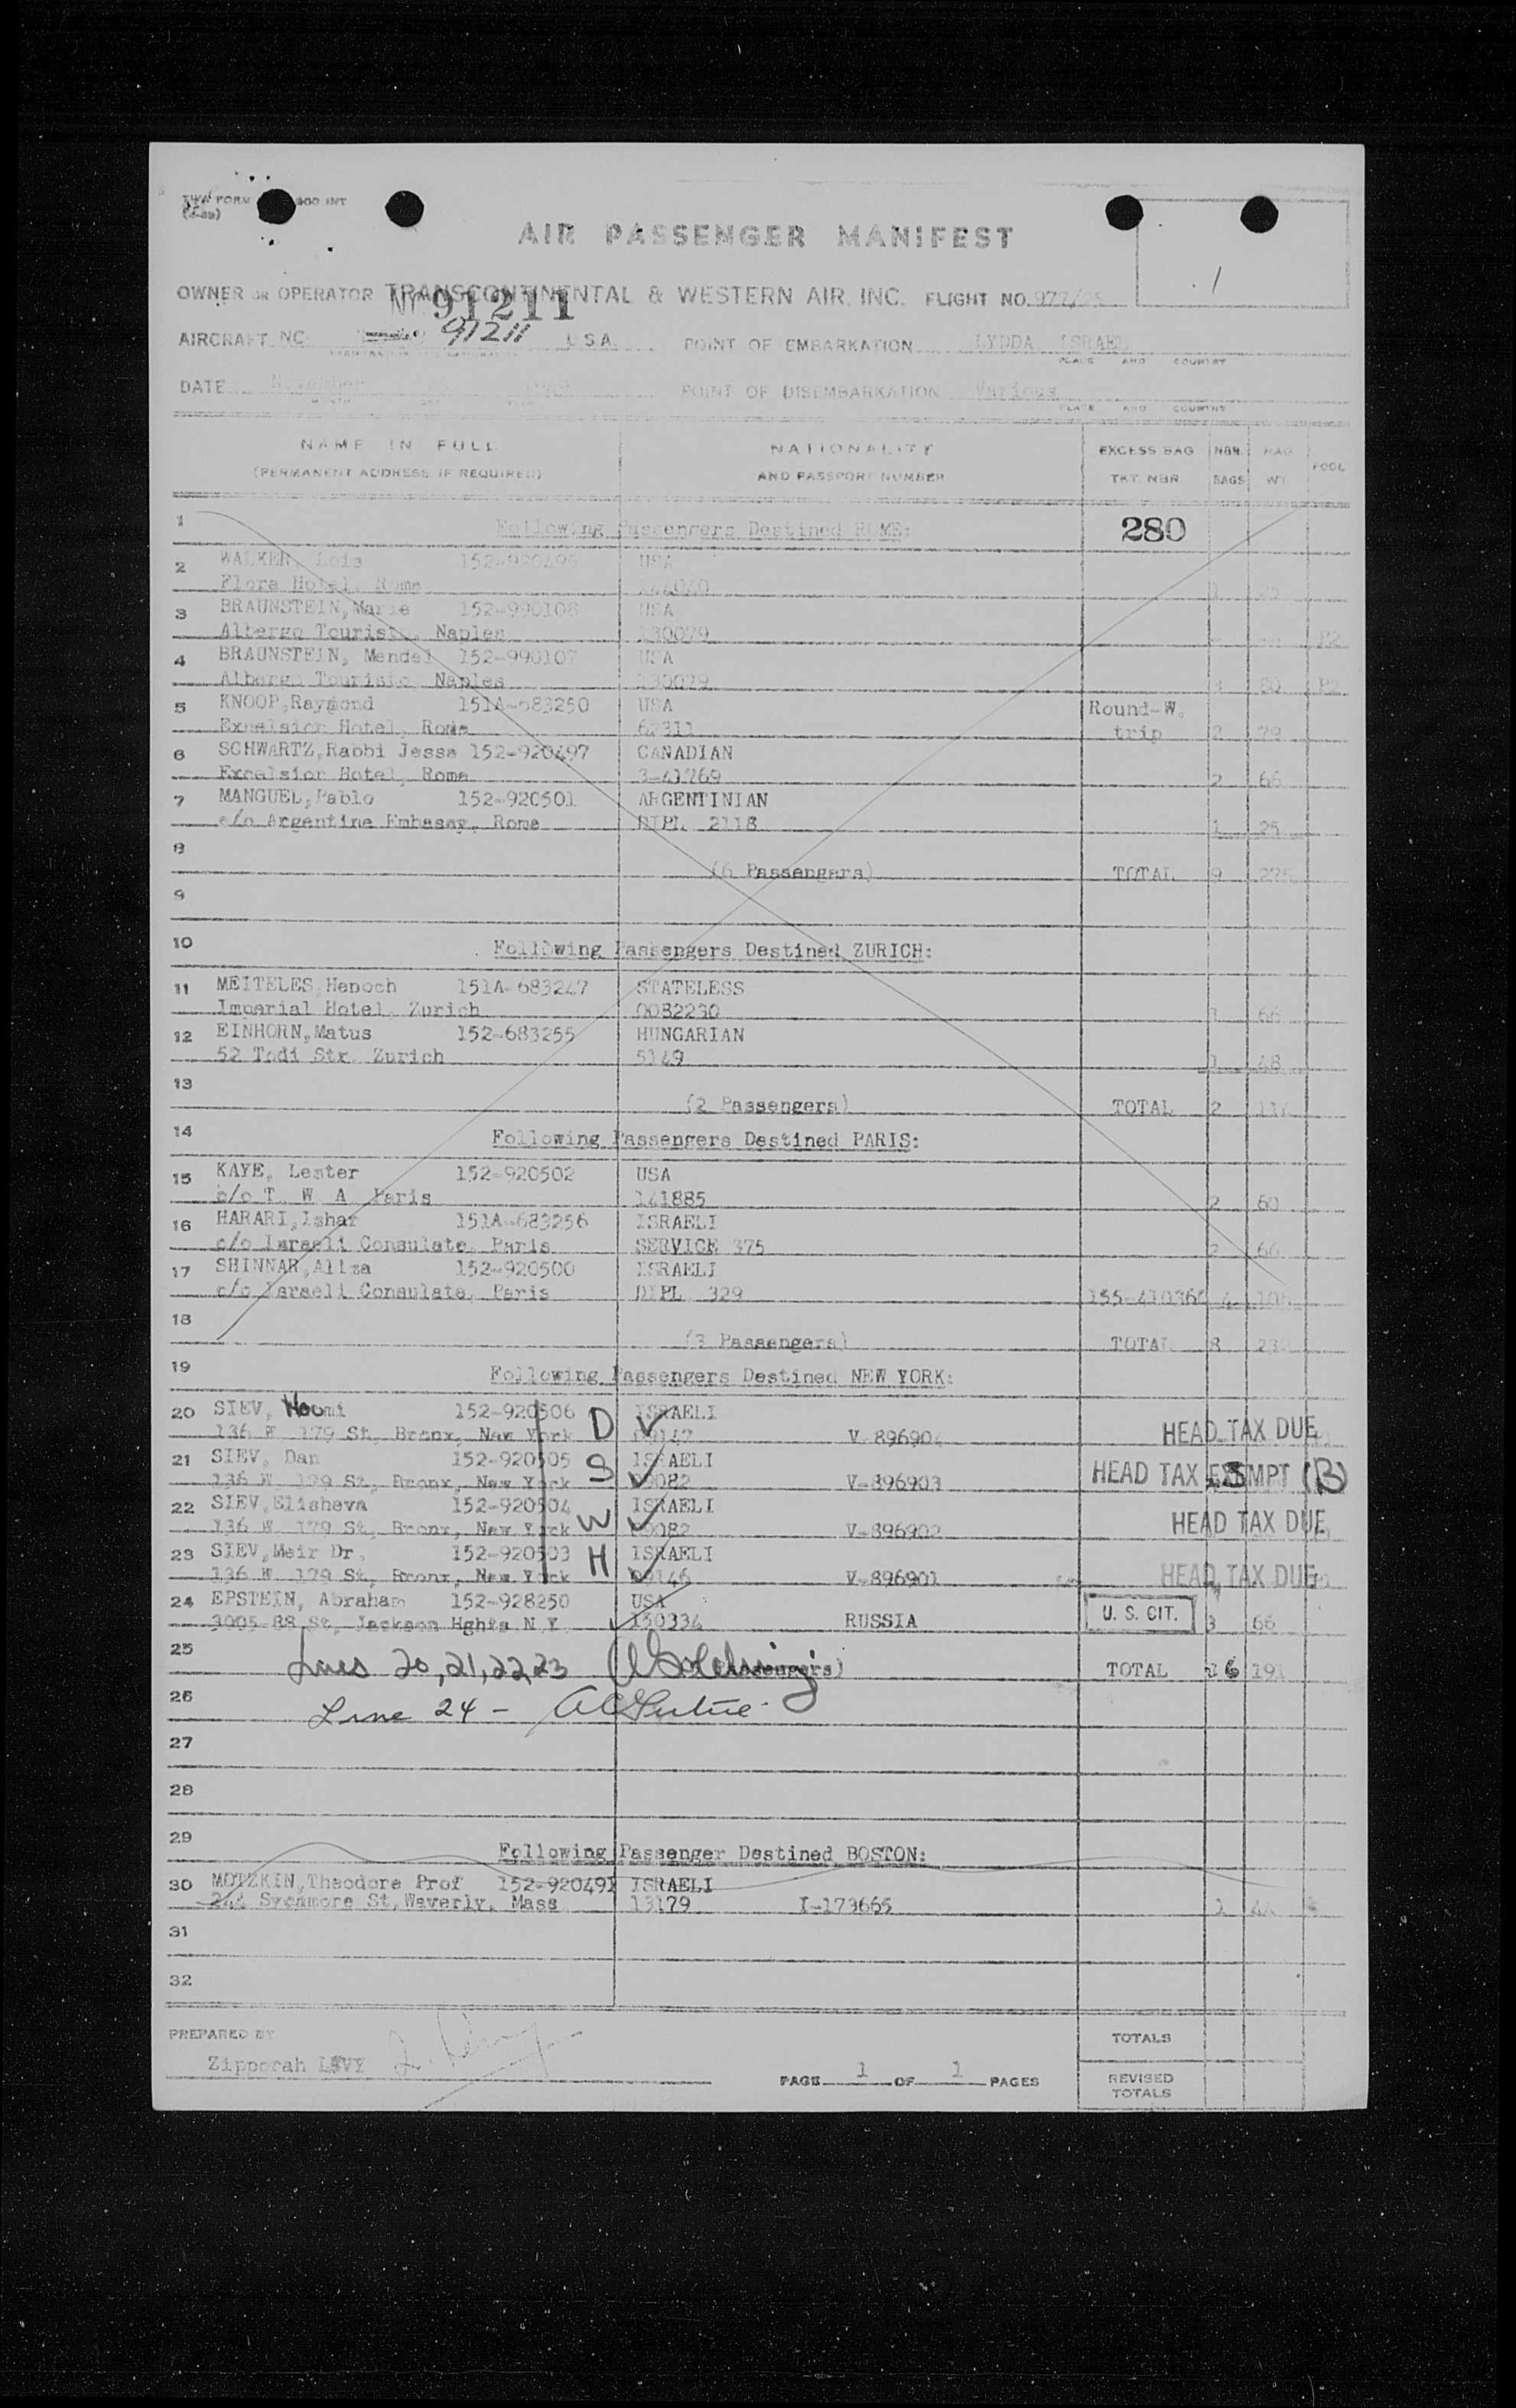 TWA FORM 900 INT
AIR PASSENGER MANIFEST
OWNER OR OPERATOR TRANSCONTINENTAL & WESTERN AIR, INC. FLIGHT NO. 977/25
NC 91211
AIRCRAFT NC 91211 U.S.A. POINT OF EMBARKATION LYDDA ISRAEL
PLACE AND COUNTRY
DATE November POINT OF DISEMBARKATION Various
MONTH PLACE AND COUNTRY
NAME IN FULL NATIONALITY EXCESS BAG NBR. BAG POOL
(PERMANENT ADDRESS IF REQUIRED) AND PASSPORT NUMBER TKT. NBR BAGS WT
1 Following Passengers Destined ROME: 280
2 WALKER, Lois 152-920496 USA
Flora Hotel, Rome 1 25
3 BRAUNSTEIN, Marie 152-990108 USA
Albergo Touristo, Naples 130079 P2
4 BRAUNSTEIN, Mendel 152-990107 USA
Albergo Touristo, Naples 130079 3 80 P2
5 KNOOP, Raymond 151A-683250 USA Round-W.
Excelsior Hotel, Rome 62311 trip 2 79
6 SCHWARTZ, Rabbi Jesse 152-920497 CANADIAN
Excelsior Hotel, Rome 3-41769 2 66
7 MANGUEL, Pablo 152-920501 ARGENTINIAN
c/o Argentine Embassy, Rome DIPL 2118 1 25
8 (6 Passengers) TOTAL 9 275
9
10 Following Passengers Destined ZURICH:
11 MEITELES, Henoch 151A-683247 STATELESS
Imperial Hotel, Zurich 0082230 1 66
12 EINHORN, Matus 152-683255 HUNGARIAN
52 Todi Str. Zurich 5149 1 48
13 (2 Passengers) TOTAL 2 114
14 Following Passengers Destined PARIS:
15 KAYE, Lester 152-920502 USA
c/o T W A Paris 141885 2 60
16 HARARI, Ishar 151A-683256 ISRAELI
c/o Israeli Consulate, Paris SERVICE 375 2 66
17 SHINNAR, Aliza 152-920500 ISRAELI
c/o Israeli Consulate, Paris DIPL 329 155-410360 4 106
18 (3 Passengers) TOTAL 8 232
19 Following Passengers Destined NEW YORK:
20 SIEV, Naomi 152-920506 D ISRAELI
136 W 179 St, Bronx, New York V-896904 HEAD TAX DUE
21 SIEV, Dan 152-920505 S ISRAELI
136 W 179 St, Bronx, New York V-896903 HEAD TAX EXEMPT (B)
22 SIEV, Elisheva 152-920504 W ISRAELI
136 W 179 St, Bronx, New York V-896902 HEAD TAX DUE
23 SIEV, Meir Dr. 152-920503 H ISRAELI
136 W 179 St, Bronx, New York V-896901 HEAD TAX DUE
24 EPSTEIN, Abraham 152-928250 USA
3005-88 St, Jackson Hghts N Y 130334 RUSSIA U. S. CIT. 3 66
25 Lines 20, 21, 22, 23 Passengers) TOTAL 6 191
26 Line 24 -
27
28
29 Following Passenger Destined BOSTON:
30 MOTZKIN, Theodore Prof 152-920491 ISRAELI
244 Sycamore St, Waverly, Mass 13179 I-173665 1 44
31
32
PREPARED BY TOTALS
Zipporah LEVY Z. Levy
PAGE 1 OF 1 PAGES REVISED
TOTALS